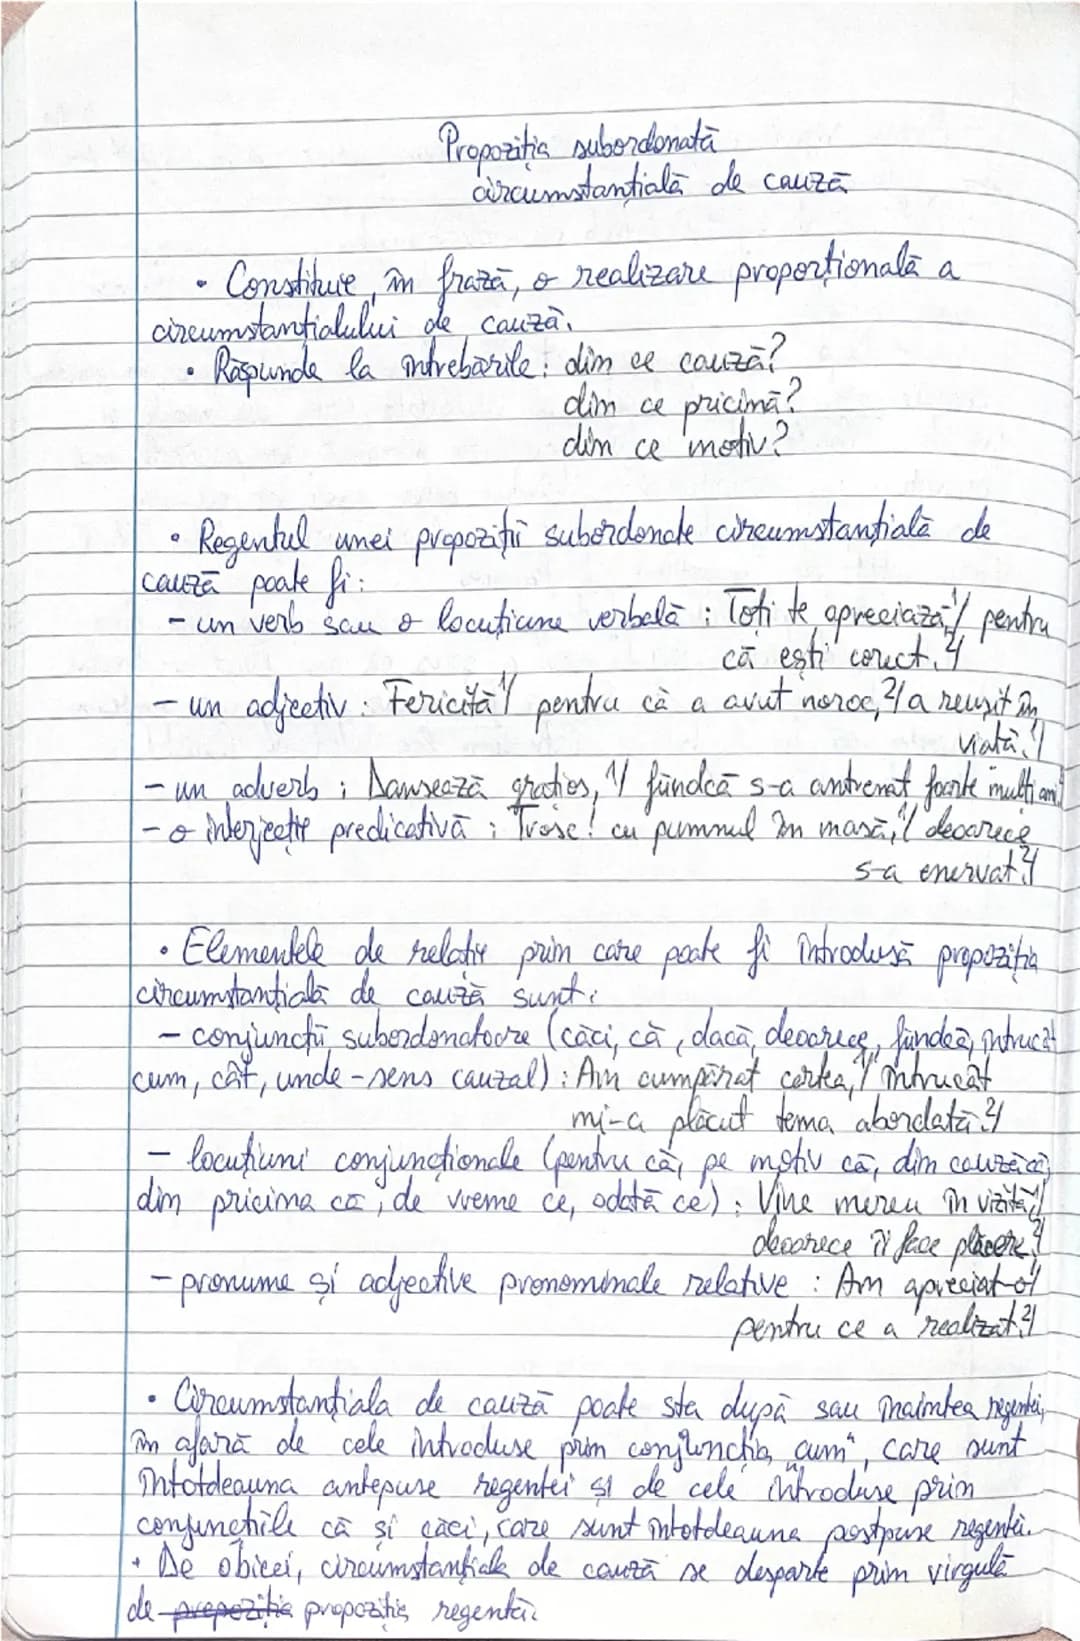 Propoziția subordonată
circumstanțială de cauză
• Constituie, în frază, o realizare proporțională a
circumstanțialului de cauză.
• Răspunde la întrebările: din ce cauză?
din ce pricină?
din ce motiv?
• Regentul unei propoziții subordonate circumstanțială de
cauză poate fi:
- un verb sau o locuțiune verbală : Toți te apreciază,1/ pentru
că ești corect.2/
- un adjectiv : Fericită1/ pentru că a avut noroc,2/ a reușit în
viață.1/
- un adverb : Dansează grațios,1/ fiindcă s-a antrenat foarte mulți ani.2/
- o interjecție predicativă : Trosc! cu pumnul în masă,1/ deoarece
s-a enervat.2/
• Elementele de relație prin care poate fi introdusă propoziția
circumstanțială de cauză sunt:
- conjuncții subordonatoare (căci, că, dacă, deoarece, fiindcă, întrucât
cum, cât, unde - sens cauzal) : Am cumpărat cartea,1/ întrucât
mi-a plăcut tema abordată.2/
- locuțiuni conjuncționale (pentru că, pe motiv că, din cauză că,
din pricina că, de vreme ce, odată ce) : Vine mereu în vizită,1/
deoarece îi face plăcere.2/
- pronume și adjective pronominale relative : Am apreciat-o1/
pentru ce a realizat.2/
• Circumstanțiala de cauză poate sta după sau înaintea regentei,
în afară de cele introduse prin conjuncția „cum", care sunt
întotdeauna antepuse regentei și de cele introduse prin
conjuncțiile că și căci, care sunt întotdeauna postpuse regentei.
• De obicei, circumstanțiala de cauză se desparte prin virgulă
de prepoziția propoziția regentă.